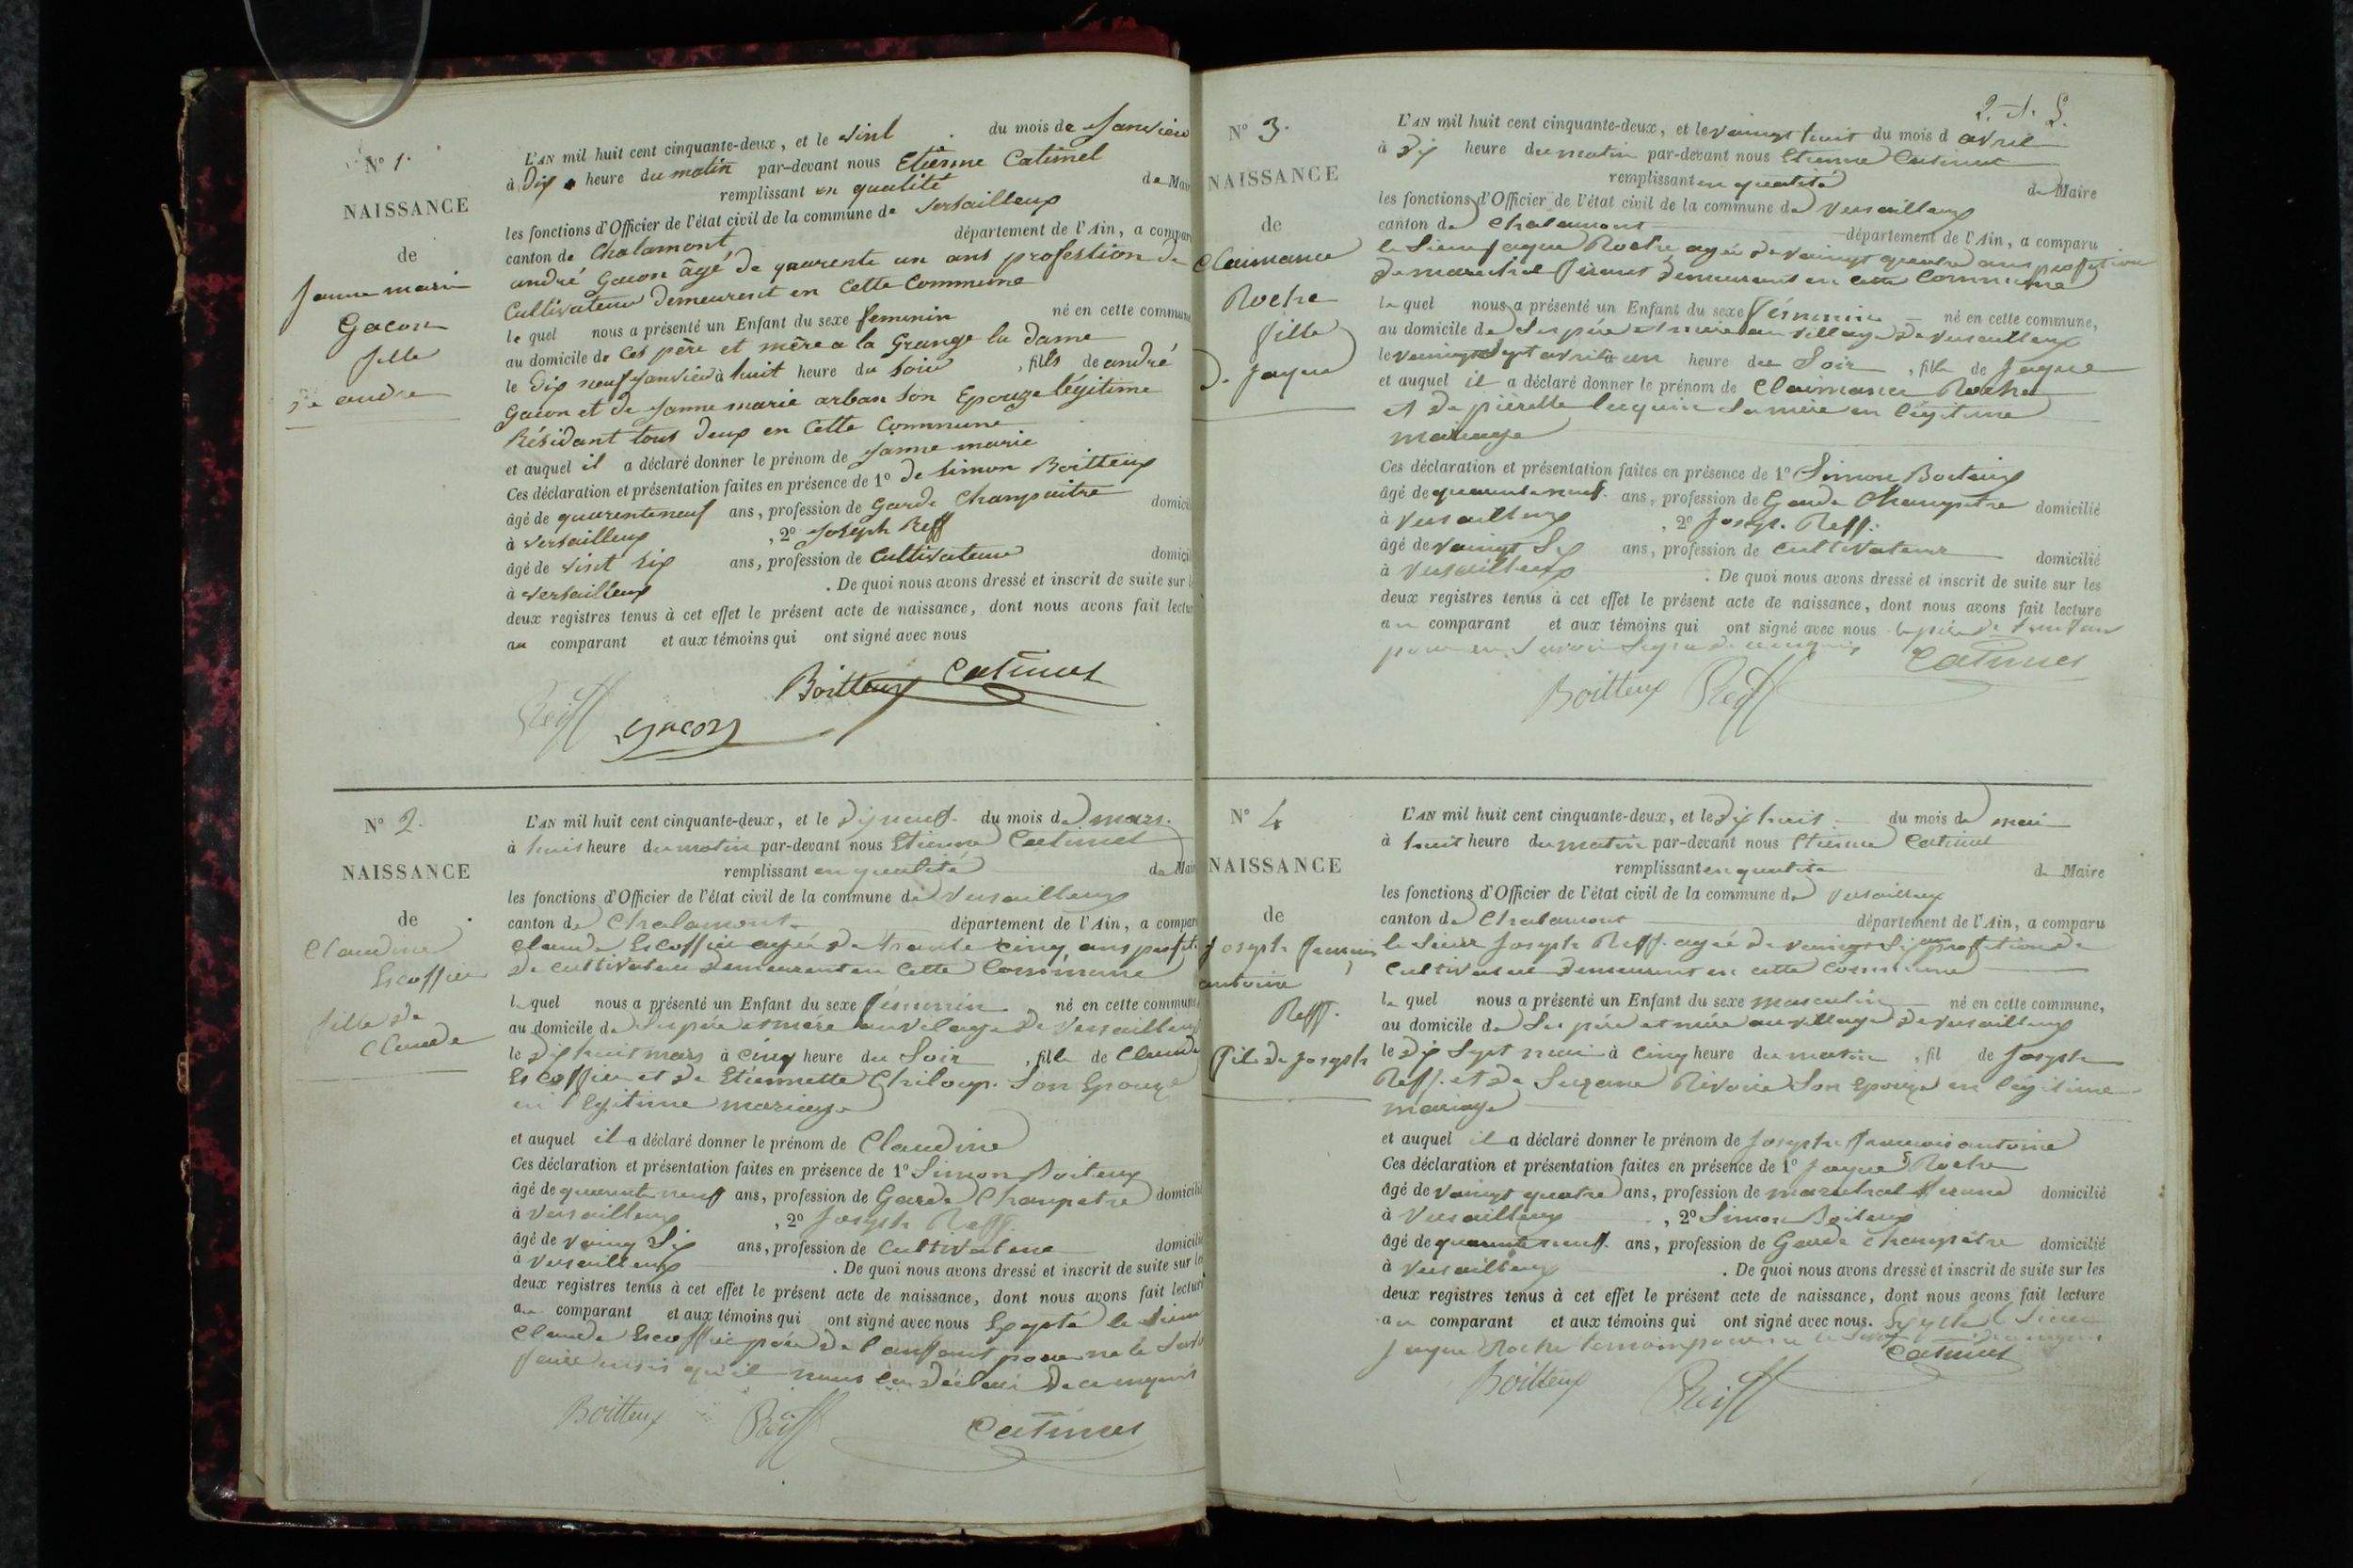 N° 1.
NAISSANCE
de
Janne marie
Gacon
fille
de andré
L'AN mil huit cent cinquante-deux, et le vint du mois de Janvier
à Dix heure du matin par-devant nous Etienne Catimel
remplissant en qualité de Mair
les fonctions d'Officier de l'état civil de la commune de Versailleux
canton de Chalamont département de l'Ain, a compar
andré Gacon âgé de quarente un ans profession de
Cultivateur demeurent en Cette Commune
le quel nous a présenté un Enfant du sexe feminin né en cette commune
au domicile de Ces père et mère a la Grange la Dame
le Dix neuf Janvier à huit heure du soir, fills de andré
Gacon et de Janne marie arban son Epouze légitime
Résidant tous deux en Cette Commune
et auquel il a déclaré donner le prénom de Janne marie
Ces déclaration et présentation faites en présence de 1° de Simon Boitteux
âgé de quarenteneuf ans, profession de Garde Champaitre domicil
à Versailleux, 2° Joseph Reff
âgé de vint six ans, profession de Cultivateur domicil
à Versailleux. De quoi nous avons dressé et inscrit de suite sur l
deux registres tenus à cet effet le présent acte de naissance, dont nous avons fait lectur
au comparant et aux témoins qui ont signé avec nous
Boitteux Catimel
Reiff Gacon
N° 2.
NAISSANCE
de
Claudine
Escoffier
fille de
Claude
L'AN mil huit cent cinquante-deux, et le dix neuf. du mois de mars.
à huit heure du matin par-devant nous Etienne Catimel
remplissant en qualité de Mair
les fonctions d'Officier de l'état civil de la commune de Versailleux
canton de Chalamont département de l'Ain, a compar
Claude Escoffier agée de trante cinq ans
de cultivateur demeurant en Cette Commune
le quel nous a présenté un Enfant du sexe féminin né en cette commune
au domicile de Ses père et mère au vilage de Versailleux
le dix huit mars à cinq heure du Soir, fille de Claude
Escoffier et de Etiennette Chiloup. Son Epouze
en légitime mariage
et auquel il a déclaré donner le prénom de Claudine
Ces déclaration et présentation faites en présence de 1° Simon Boiteux
âgé de quarente neuf ans, profession de Garde Champetre domicilié
à Versailleux, 2° Joseph Reff.
âgé de vaing Six ans, profession de Cultivateur domicilié
à Versailleux. De quoi nous avons dressé et inscrit de suite sur les
deux registres tenus à cet effet le présent acte de naissance, dont nous avons fait lecture
au comparant et aux témoins qui ont signé avec nous Exepté le Sieur
Claude Escoffier père de l'anfant pour ne le
faire insi qu'il nous en déclaré de ce enquis
Boitteux Reiff Catimel
2.
N° 3.
NAISSANCE
de
Claimance
Roche
fille
de Jaque
L'AN mil huit cent cinquante-deux, et le vaingt huit du mois d avril
à dix heure du matin par-devant nous Etienne Catimel
remplissant en qualité de Maire
les fonctions d'Officier de l'état civil de la commune de Versailleux
canton de Chalamont département de l'Ain, a comparu
le Sieur Jaque Roche agée de vaingt quatre ans profetion
de marechal férant demeurant en cette Commune
le quel nous a présenté un Enfant du sexe féminin né en cette commune,
au domicile de Ses père et mère au village de Versailleux
le vaingt Sept avril à un heure du Soir, fille de Jaque
et auquel il a déclaré donner le prénom de Claimance Roche
et de pierette luquin Sa mère en légitime
mariage
Ces déclaration et présentation faites en présence de 1° Simon Boiteux
âgé de quarente neuf. ans, profession de Garde Champetre domicilié
à Versailleux, 2° Joseph. Reff.
âgé de vaingt Six ans, profession de Cultivateur domicilié
à Versailleux. De quoi nous avons dressé et inscrit de suite sur les
deux registres tenus à cet effet le présent acte de naissance, dont nous avons fait lecture
au comparant et aux témoins qui ont signé avec nous
Catimel
Boitteux Reiff
N° 4
NAISSANCE
de
Joseph françois
antoine
Reff.
fils de Joseph
L'AN mil huit cent cinquante-deux, et le dix huit du mois de mai
à huit heure du matin par-devant nous Etienne Catimel
remplissant en qualité de Maire
les fonctions d'Officier de l'état civil de la commune de Versailleux
canton de Chalamont département de l'Ain, a comparu
le Sieur Joseph Reff. agée de vaingt Six ans profetion de
Cultivateur demeurant en cette commune
le quel nous a présenté un Enfant du sexe masculin né en cette commune,
au domicile de Ses père et mère au village de Versailleux
le dix Sept mai à Cinq heure du matin, fil de Joseph
Reff. et de Suzane Rivoire Son Epouze en légitime
mariage
et auquel il a déclaré donner le prénom de Joseph françois antoine
Ces déclaration et présentation faites en présence de 1° Jaque Roche
âgé de vaingt quatre ans, profession de marechal ferand domicilié
à Versailleux, 2° Simon Boiteux
âgé de quarente neuf. ans, profession de Garde Champètre domicilié
à Versailleux. De quoi nous avons dressé et inscrit de suite sur les
deux registres tenus à cet effet le présent acte de naissance, dont nous avons fait lecture
au comparant et aux témoins qui ont signé avec nous. Exepté le Sieur
Jaque Roche temoin pour ne le
Catimel
Boitteux Reiff